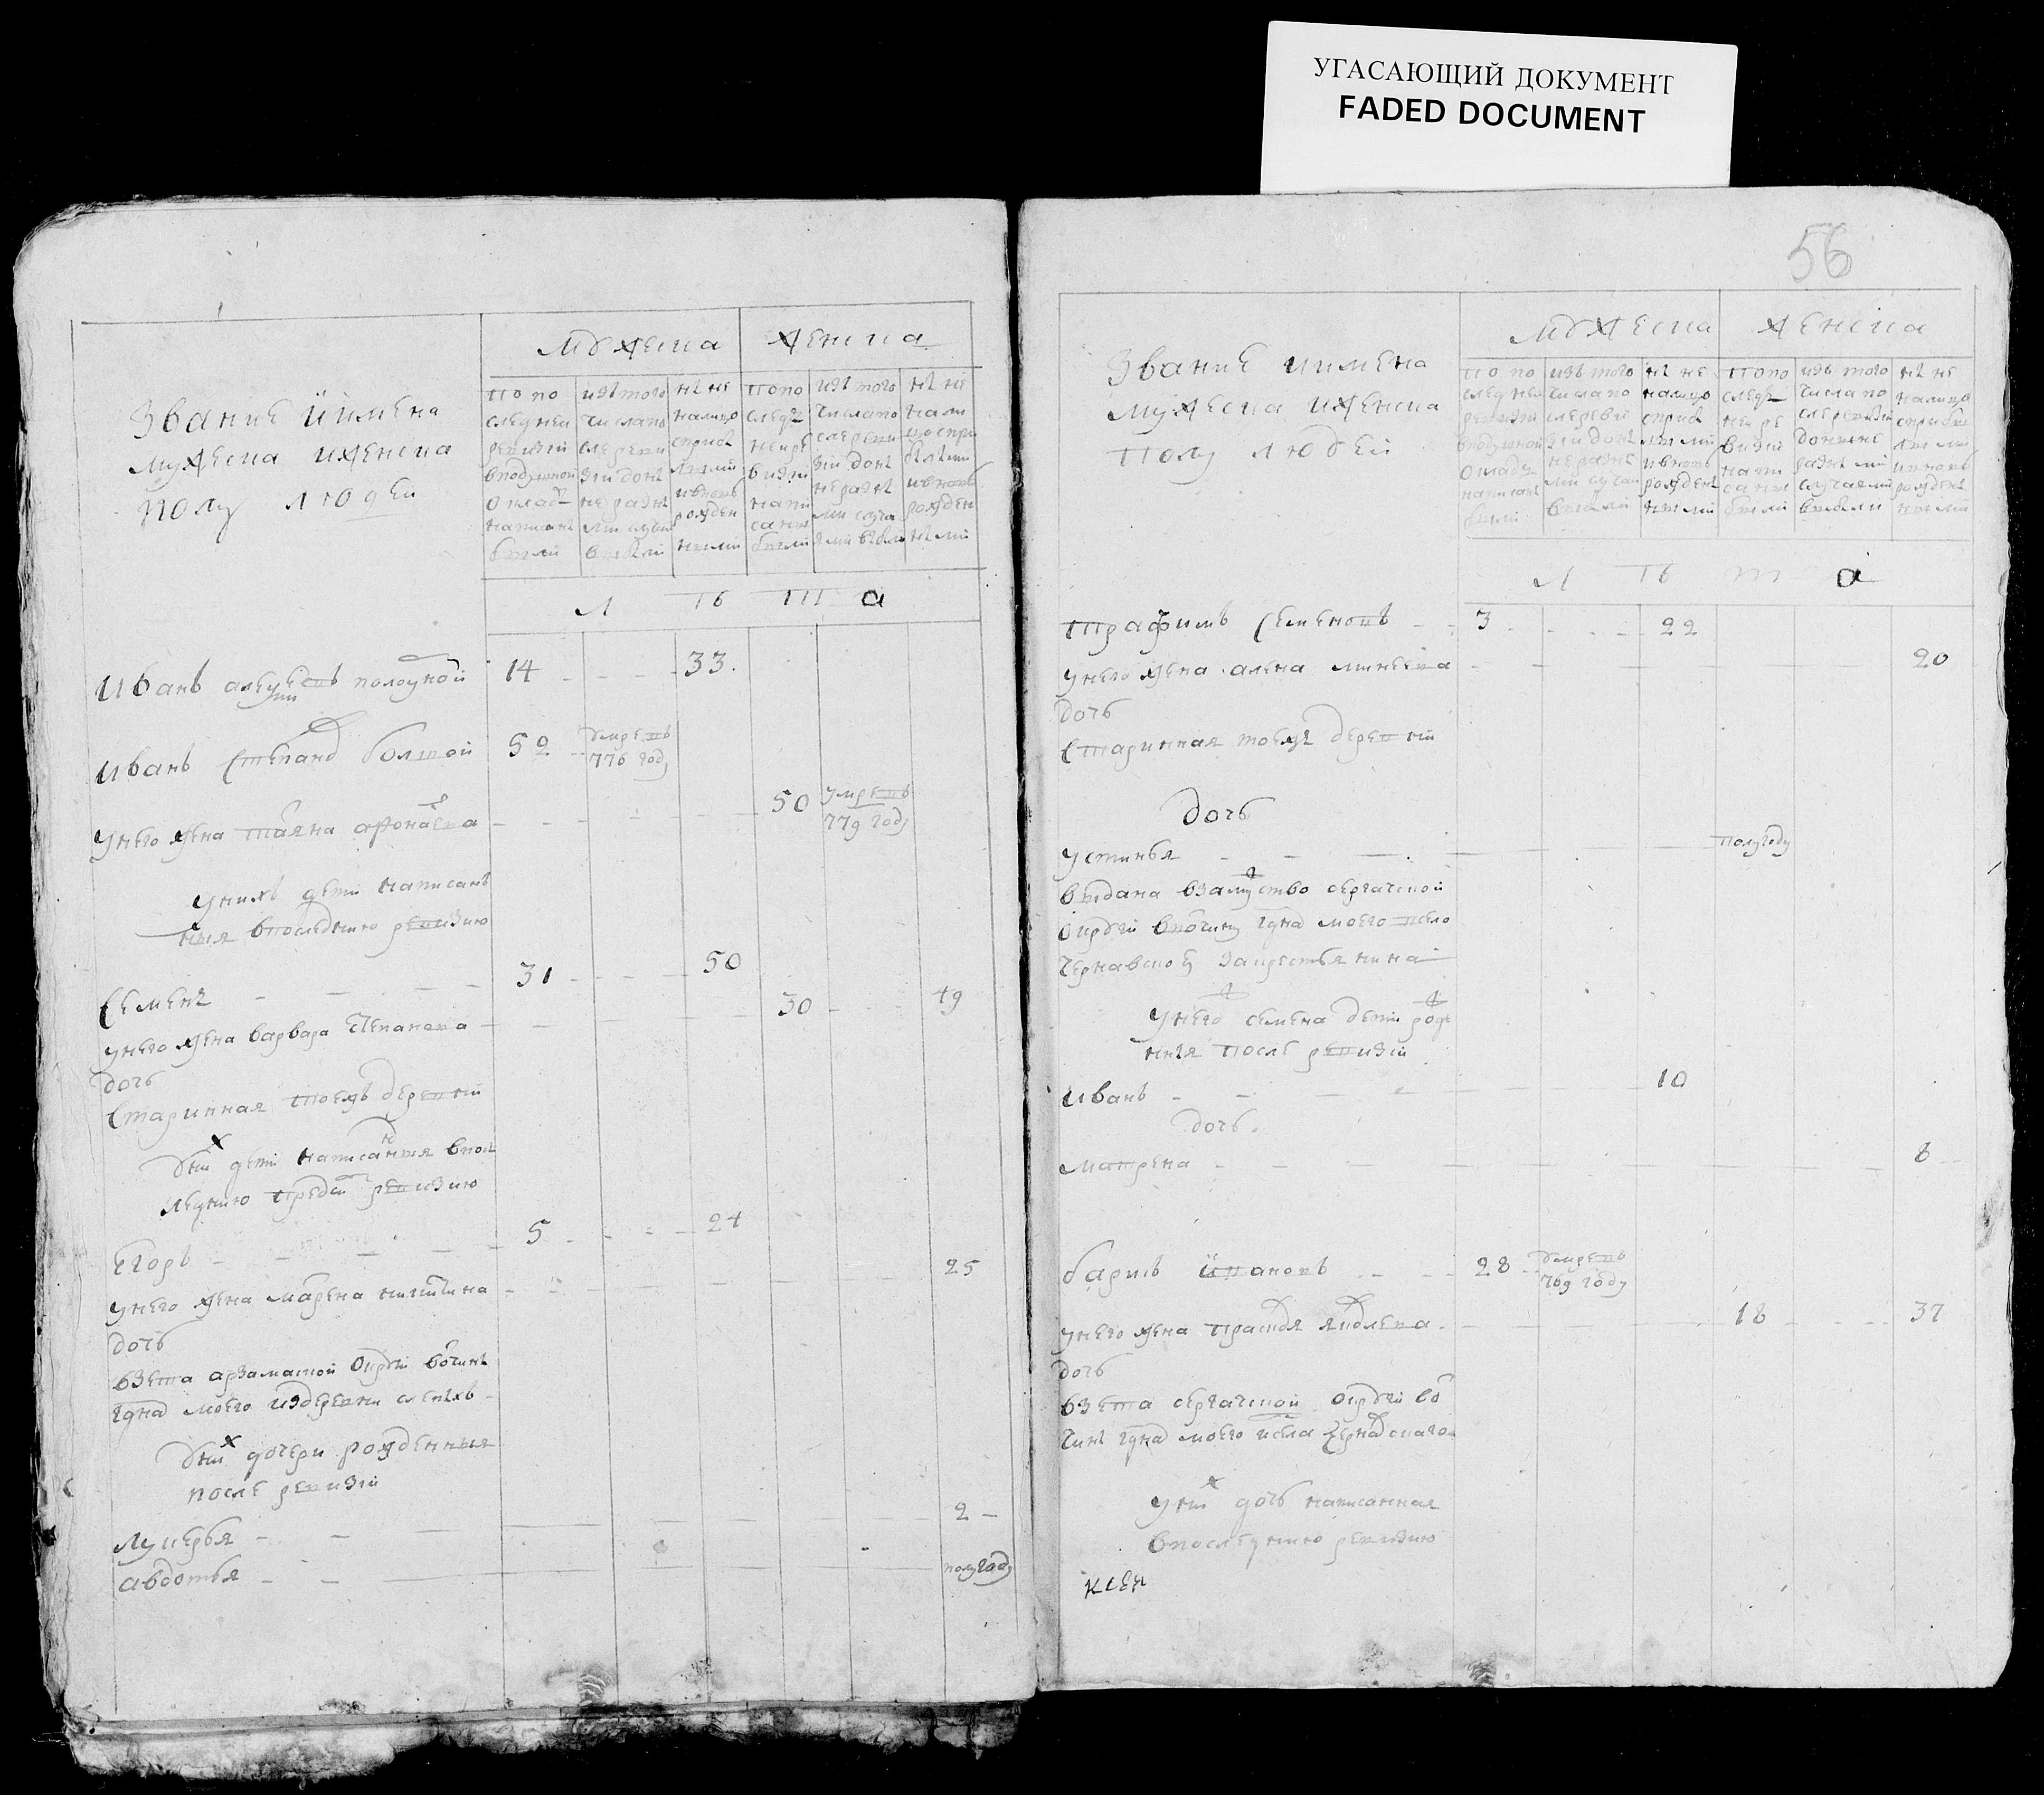 УГАСАЮЩИЙ ДОКУМЕНТ
FADED DOCUMENT
56
Мужеска
Женска
Звание и имена
мужеска и женска
полу людей
по по
следней
ревизии
в подушной
оклад
написаны
были
изъ того
числа по
сле реви
зии до ны
не разны
ми случаи
выбыли
ны не
на лицо
с прибы
лыми
и вновь
рожден
ными
по по
следъ
ней ре
визии
напи
саны
были
изъ того
числа по
сле реви
зии до ны
не разны
ми случа
ями выбыли
ны не
на ли
цо с при
былыми
и вновь
рожден
ными
л ѣ т а
Иванъ алеѯеевъ 14 33
Иванъ Степановъ болшой 52 умре въ
776 году
у него жена татьяна афонасева 50 умре въ
779 году
у нихъ дети написан
ныя в последнюю ревизию
Семенъ 31 50
у него жена варвара степанова 30 49
дочь
Старинная тоежъ деревни
у них дети написанныя в пос
леднюю пред сим ревизию
Егоръ 5 24
у него жена матрена никитина 25
дочь
взета арзамаской округи вотчины
гдна моего из деревни
у них дочери рожденныя
после ревизии
Лукерья 2
авдотья полугоду
Мужеска
Женска
Звание и имена
мужеска и женска
полу людей
по по
следней
ревизии
в подушной
окладъ
написаны
были
изъ того
числа по
сле реви
зии до ны
не разны
ми случаи
выбыли
ны не
на лицо
с прибы
лыми
и вновь
рожден
ными
по по
следъ
ней ре
визии
напи
саны
были
изъ того
числа по
сле ревизии
до ныне
разными
случаями
выбыли
ны не
на лицо
с прибы
лыми
и вновь
рожден
ными
л ѣ т а
трафимъ Семеновъ 3 22
у него жена алена минеева 20
дочь
Старинная тоежъ деревни
дочь
устинья полугоду
выдана в замужство сергачской
округи вотчину гдна моего в село
чернавское за крестьянина
у него семена дети рожде
ныя после ревизии
Иванъ 10
дочь
матрена 8
барисъ Ивановъ 28 умре въ
769 году
у него жена прасковья яковлева 18 37
дочь
взета сергачской округи во
чины гдна моего из села чернавскаго
у них дочь написанная
в последнюю ревизию
ксен